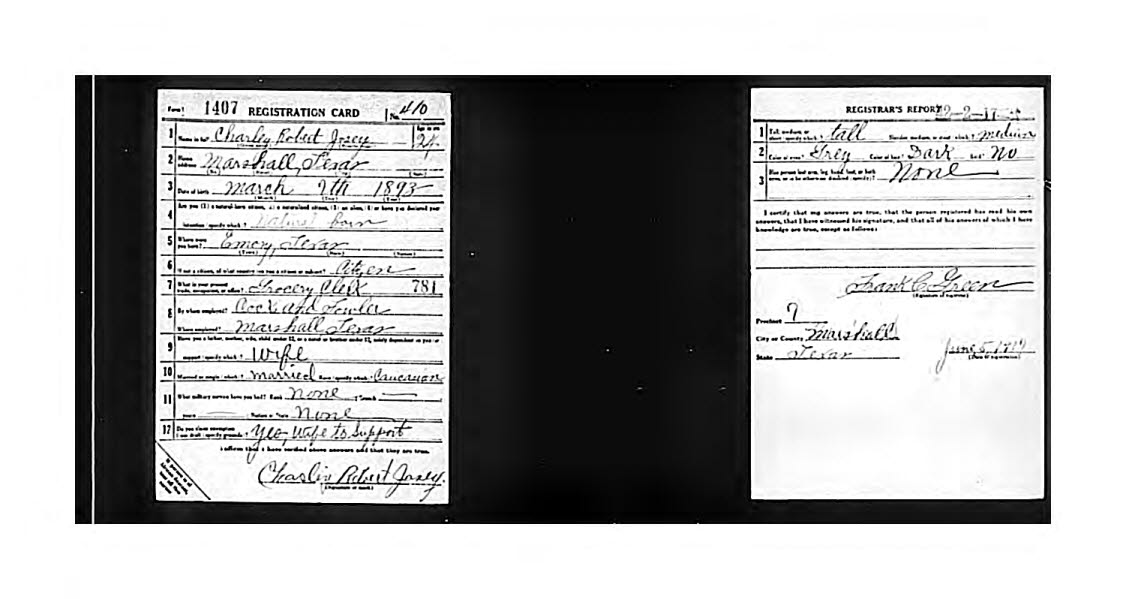 Form 1 1407 REGISTRATION CARD No. 410
1 Name in full Charley Robert Josey Age in yrs 24
2 Home address Marshall, Texas
3 Date of birth March 9th 1893
4 Are you (1) a natural-born citizen, (2) a naturalized citizen, (3) an alien, (4) or have you declared your
intention (specify which)? Natural born
5 Where were you born? Emory, Texas
6 If not a citizen, of what country are you a citizen or subject? Citizen
7 What is your present trade, occupation, or office? Grocery Clerk 781
8 By whom employed? Cock and Fowler
Where employed? Marshall Texas
9 Have you a father, mother, wife, child under 12, or a sister or brother under 12, solely dependent on you for
support (specify which)? Wife
10 Married or single (which)? Married Race (specify which)? Caucasion
11 What military service have you had? Rank None Branch
years Nation or State None
12 Do you claim exemption from draft (specify grounds)? Yes, Wife to Support
I affirm that I have verified above answers and that they are true.
Charlie Robert Josey.
(Signature or mark)
REGISTRAR'S REPORT 42-2-17-A
1 Tall, medium, or short (specify which)? tall Slender, medium, or stout (which)? medium
2 Color of eyes? Grey Color of hair? Dark Bald? No
3 Has person lost arm, leg, hand, foot, or both eyes, or is he otherwise disabled (specify)? None
I certify that my answers are true, that the person registered has read his own
answers, that I have witnessed his signature, and that all of his answers of which I have
knowledge are true, except as follows:
Frank C Green
(Signature of registrar)
Precinct 9
City or County Marshall
State Texas
June 5, 1917
(Date of registration)